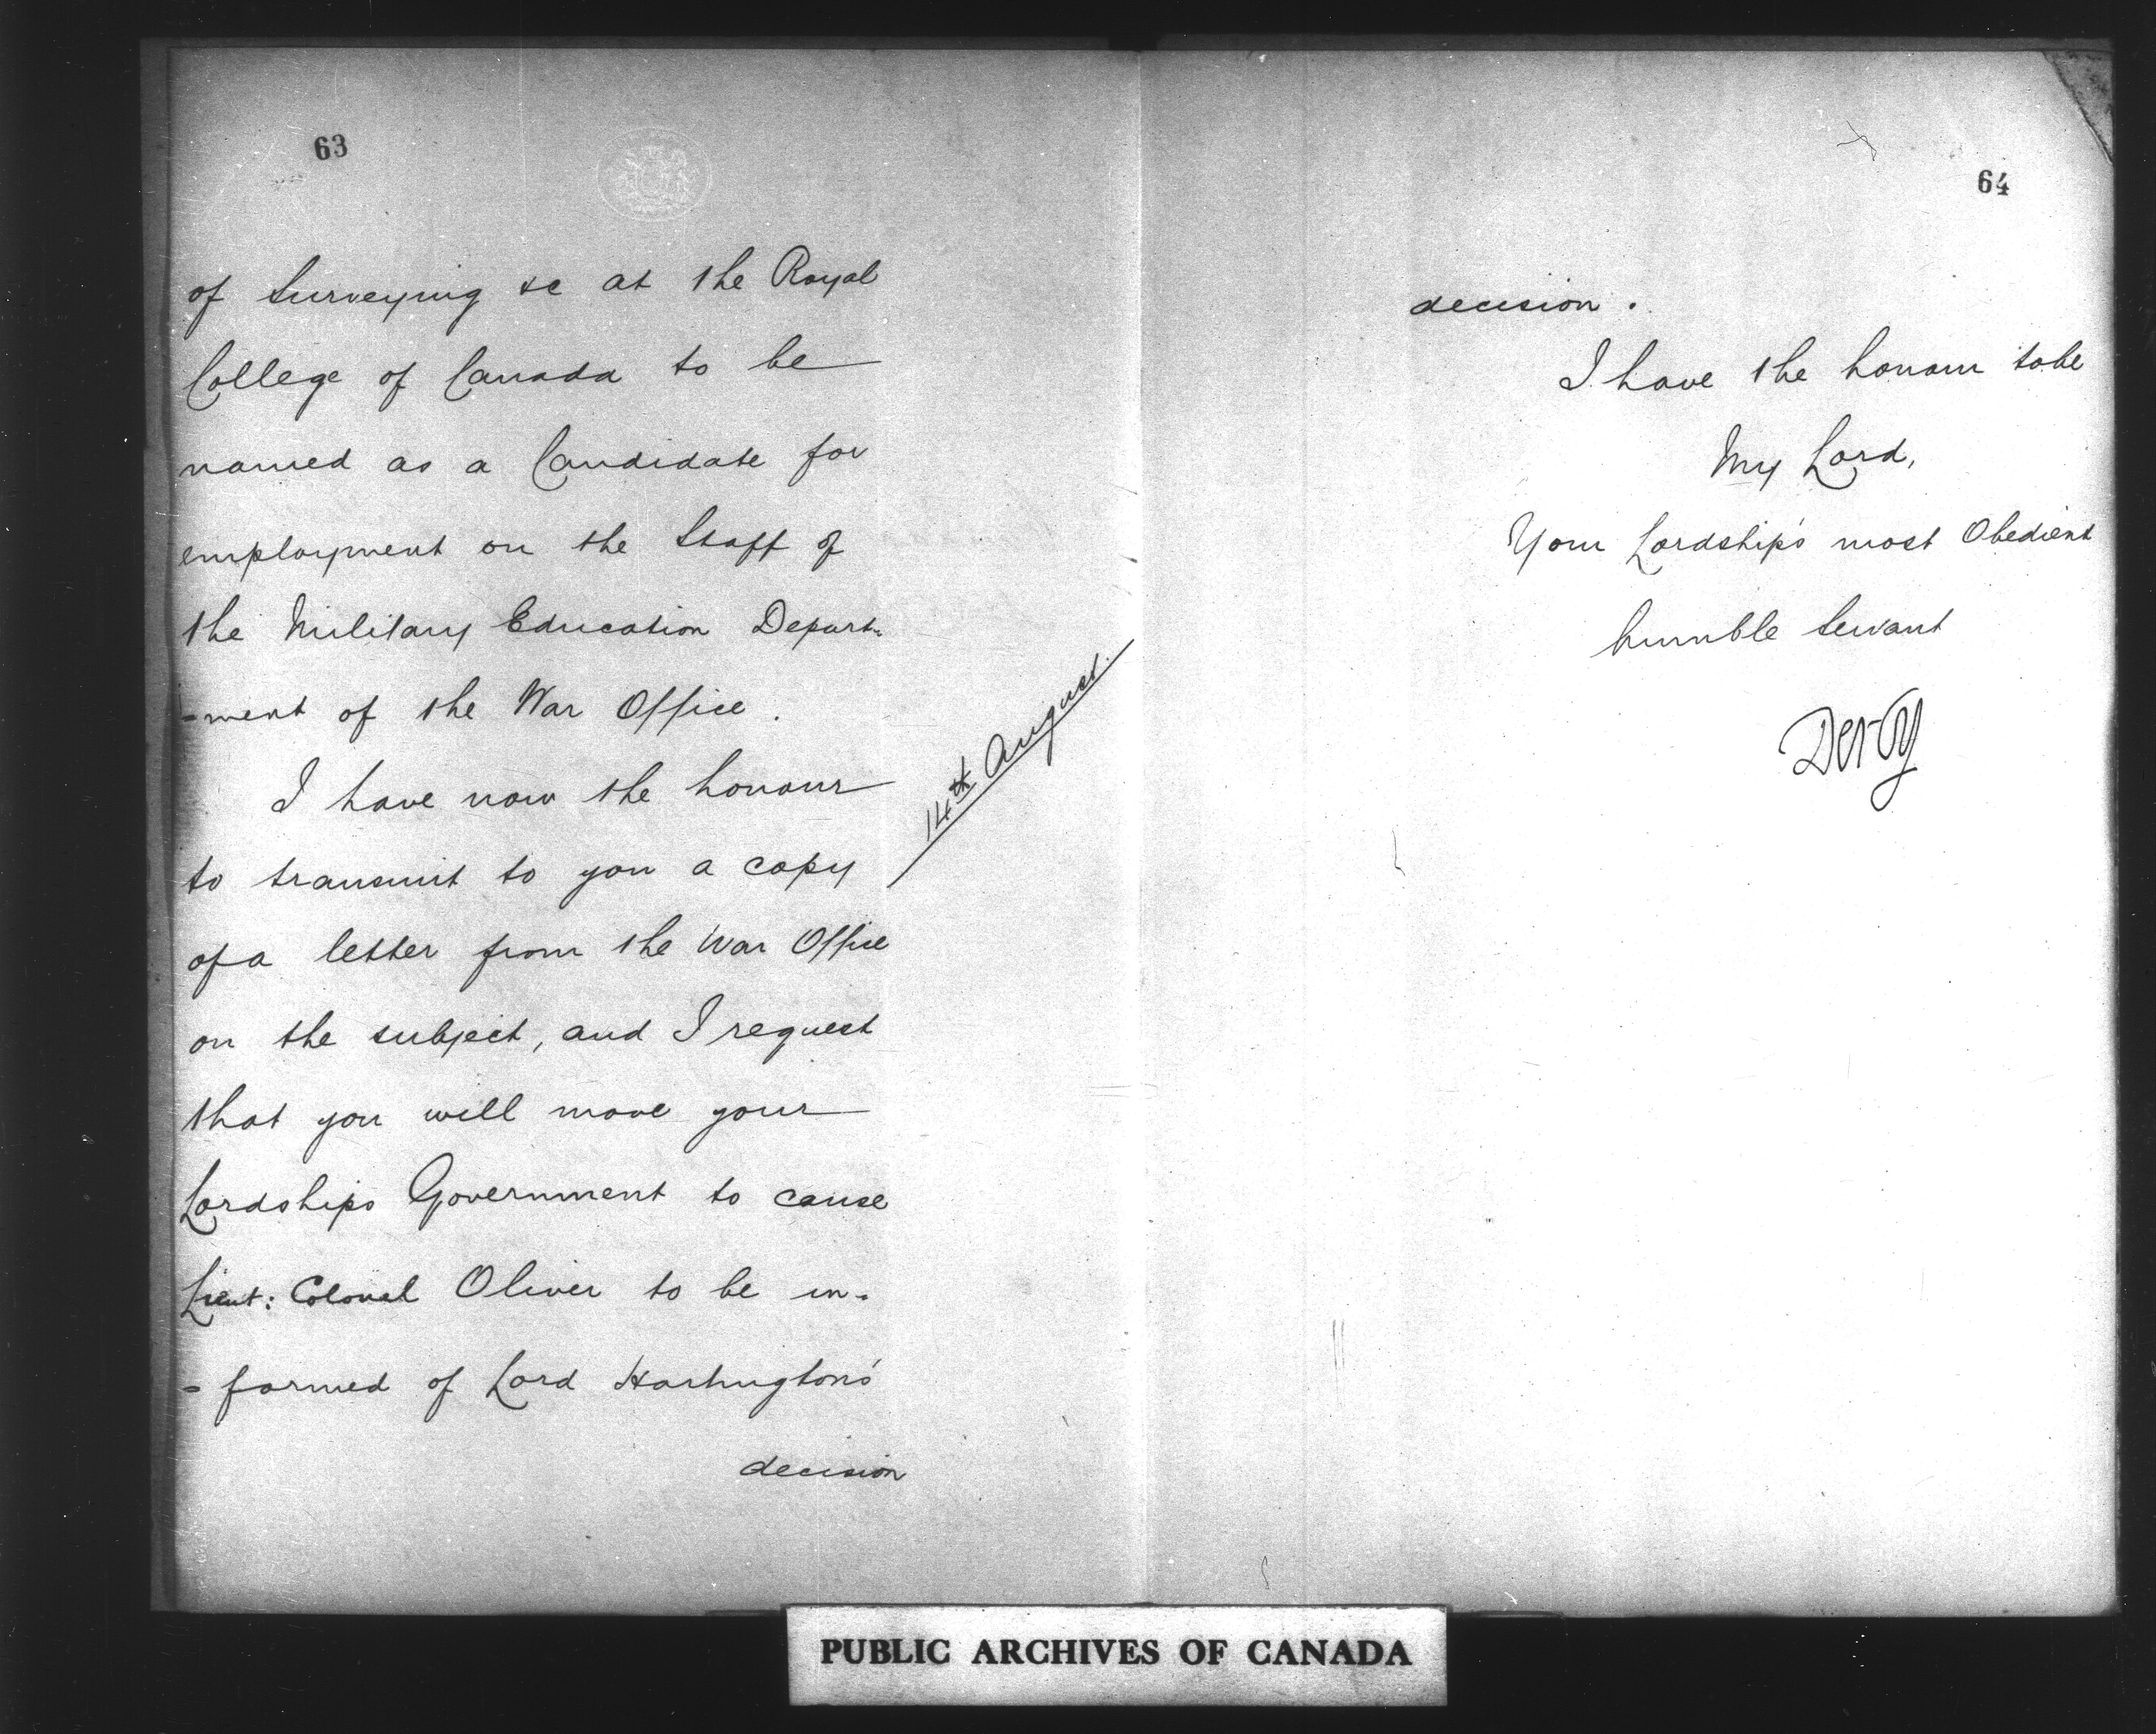 63
of Surveying &c at the Royal
College of Canada to be
named as a Candidate for
employment on the Staff of
the Military Education Depart-
-ment of the War Office.
I have now the honour
14th August.
to transmit to you a copy
of a letter from the War Office
on the subject, and I request
that you will move your
Lordships Government to cause
Lieut: Colonel Oliver to be in-
-formed of Lord Hartington's
decision
64
decision.
I have the honour to be
My Lord,
Your Lordship's most Obedient
humble Servant
Derby
PUBLIC ARCHIVES OF CANADA